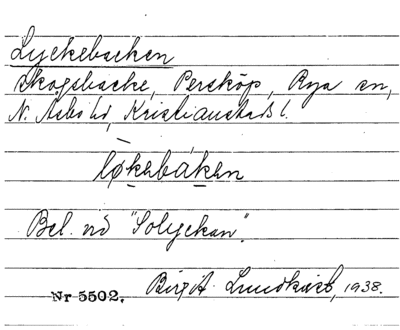 Lyckebacken
Skogsbacke, Perstorp, Rya sn,
N. Åsbo hd, Kristianstads l.
løkebáken
Bel. vid "Solyckan".
Birgit Lundkvist, 1938.
Nr 5502.